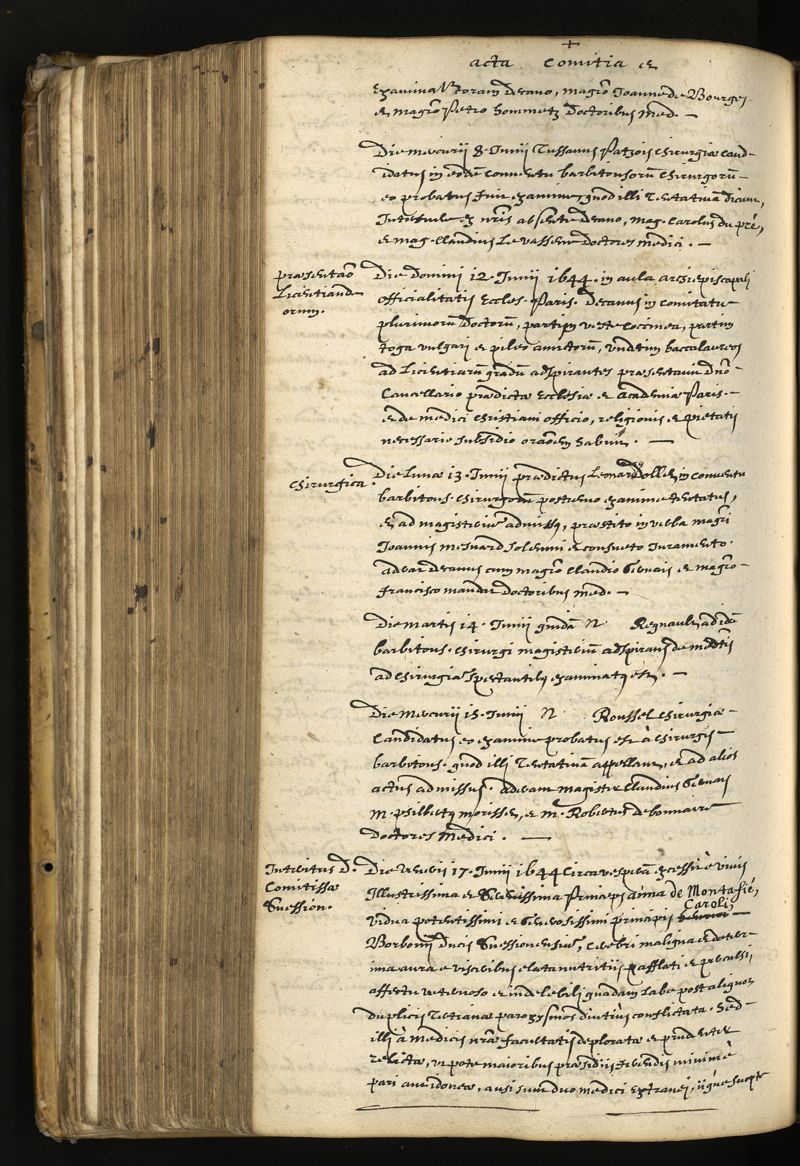 acta comitia et
examinatorum Decano, magro Joanne de Bourges
et magro Petro hommetz Doctoribus med. —
Die mercurii 8. Junii Tussanus Patzois chirurgiæ cand-
idatus in eodē conventu barbitonsorū chirurgorū —
eo probatus fuit examine, quod illi Tentativā dicunt,
Interfuere ex nris absente Decano, mag. Carolus du pré,
et mag. Claudius Le Vasseur doctores medici. —
præsentaō
Licentiand-
orum.
Die Domini 12. Junii 1644. in aula archiepiscopali
officialitatis Eccles. Paris. Decanus in comitatu
plurimorū Doctorū, partim veste coccinea, partim
toga vulgari et pileo amictorū, undecim baccalaureos
ad Licentiarū gradū adspirantes præsentavit Dno
Cancellario prædictæ Ecclesiæ et Academiæ Paris. —
et de medici christiani officio, religionis et pietatis
necessario subsidio oraōem habuit. —
chirurgica.
Die Lunæ 13. Junii prædictus Leonard Dolle in conventu
barbitons. chirurgorū postremo examine tentatus,
et ad magisterium admissus, præstito in verba magri
Joannis meinard solemni et consueto Juramento.
aderat Decanus cum magro Claudio Gervais et magro
Francisco mandat Doctoribus med. —
Die martis 14. Junii quidā N. Regnault ad idē
barbitons. chirurgi magisteriū adspirans de medtis
ad chirurgiā spectantibus examinatus est. —
Die mercurii 15. Junii N. Roussel chirurgiæ
Candidatus eo examine probatus est à chirurgis
barbitons. quod illi Tentativā appellant, et ad alios
actus admissus. aderant magistri Claudius Gervais
M. philbertus morisset, et M. Robertus de bonnaire
Doctores Medici. —
Interitus D.
Comitissæ
Suession.
Die Veneris 17. Junii 1644 circa vesperā excessit è vivis
Illustrissima et Serenissima Princeps anna de Montafié,
Caroli
vidua potentissimi et Generosissimi principis
Borbonii Ducis Suessionensium, celebri maligna et deter-
ima aura e visceribus elata nutritiis afflati et perculsi
affectu veternoso et indelebili quadam labe post aliquot
duplicis Tertianæ paroxysmos diutius conflictata. Sed
illi à medicis nræ facultatis deplorata et prudenter
relicta, utpote maioribus præsidiis ferendis minimè
pari aut idonea, ausi sunt duo medici extranei, iique suopte